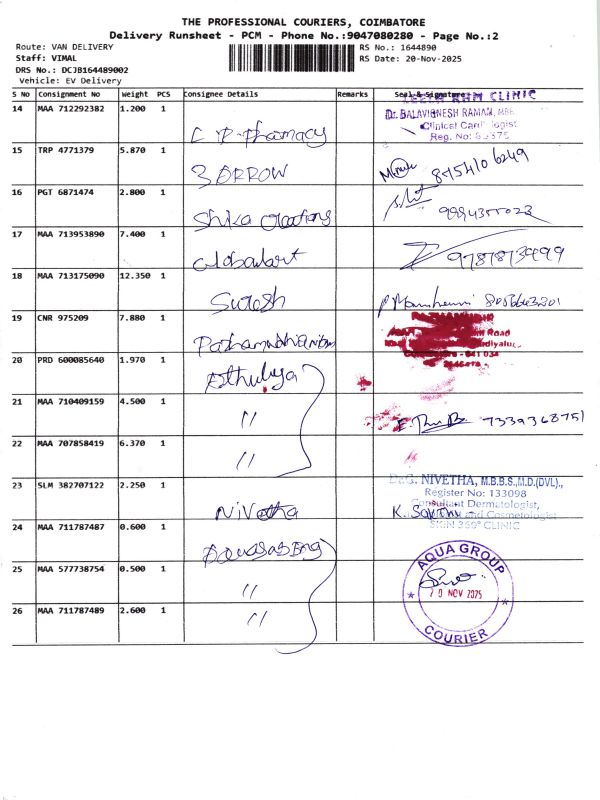 THE PROFESSIONAL COURIERS, COIMBATORE
Delivery Runsheet - PCM - Phone No.:9047080280 - Page No.:2
Route: VAN DELIVERY
RS No.: 1644890
Staff: VIMAL
RS Date: 20-Nov-2025
DRS No.: DCJB164489002
Vehicle: EV Delivery
S No Consignment No Weight PCS Consignee Details Remarks Seal & Signature
14 MAA 712292382 1.200 1 Pharmacy
CLINIC
Dr. BALAVIGNESH RAMAN, MBBS
Clinical Cardiologist
Reg. No:
15 TRP 4771379 5.870 1 3 ORROW 8754106249
16 PGT 6871474 2.800 1 Shika Creations 9994355023
17 MAA 713953890 7.400 1 Globalart 9787873499
18 MAA 713175090 12.350 1 Suresh
19 CNR 975209 7.880 1
Road
641 034
20 PRD 600085640 1.970 1 Athulya
21 MAA 710409159 4.500 1 " 7339368751
22 MAA 707858419 6.370 1 "
23 SLM 382707122 2.250 1 Nivetha
Dr.G. NIVETHA, M.B.B.S.,M.D.(DVL).,
Register No: 133098
Consultant Dermatologist,
and Cosmetologist
SKIN 360° CLINIC
24 MAA 711787487 0.600 1
25 MAA 577738754 0.500 1 "
26 MAA 711787489 2.600 1 "
AQUA GROUP
20 NOV 2025
COURIER